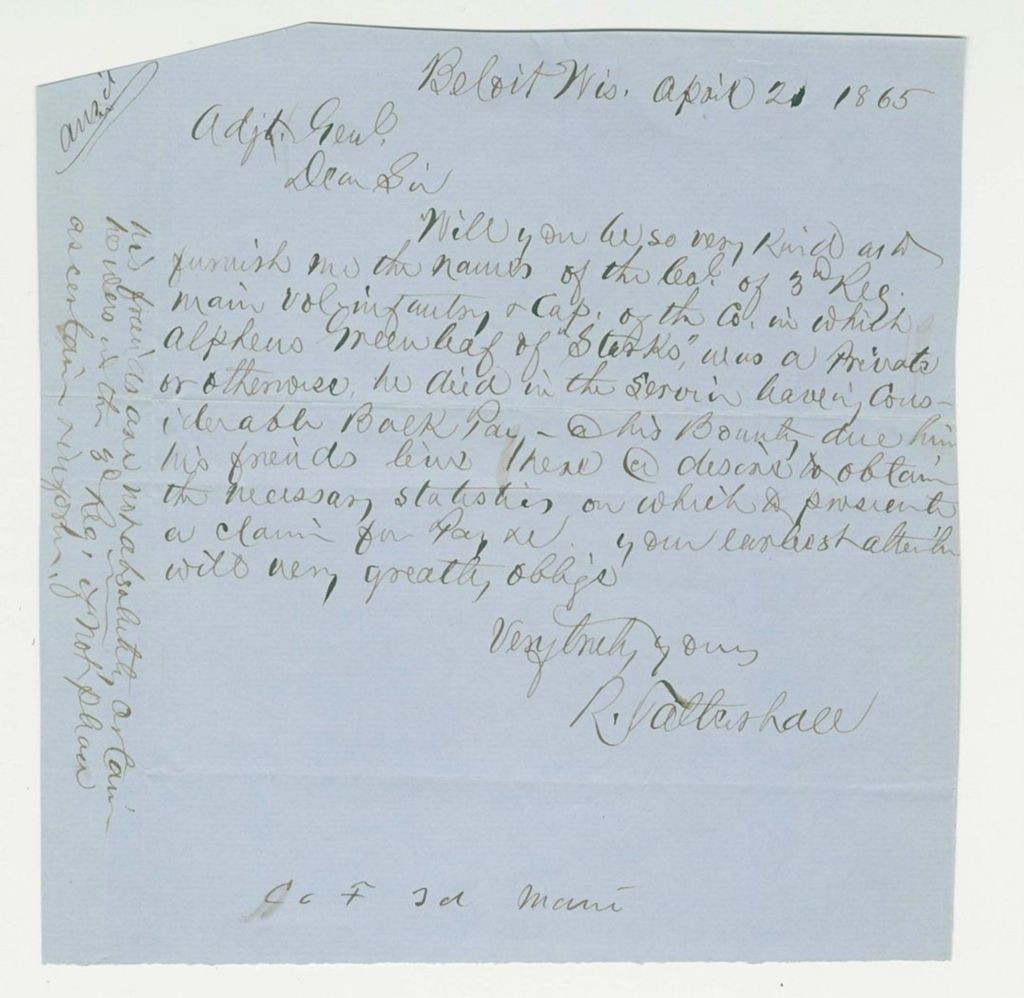 Beloit Wis. April 21 1865
Adjt. Genl.
Dear Sir
Will you be so very kind as to
furnish me the names of the Col. of 3d Reg.
Main Vol. infantry & Cap. of the Co. in which
Alpheus Greenleaf of "Starks," was a Private
or otherwise, he died in the Servic haveing Cons-
iderable Back Pay - @ his Bounty due him
his friends live here @ desire to obtain
the necessary statistics on which to prosecute
a claim for Pay &c. your earliest
will very greatly oblige
Very truly yours
R. Tattershall
his friends are not absolutely certain
he was in the 3d Reg. if not please
ascertain
ansd
Co F 3d Main